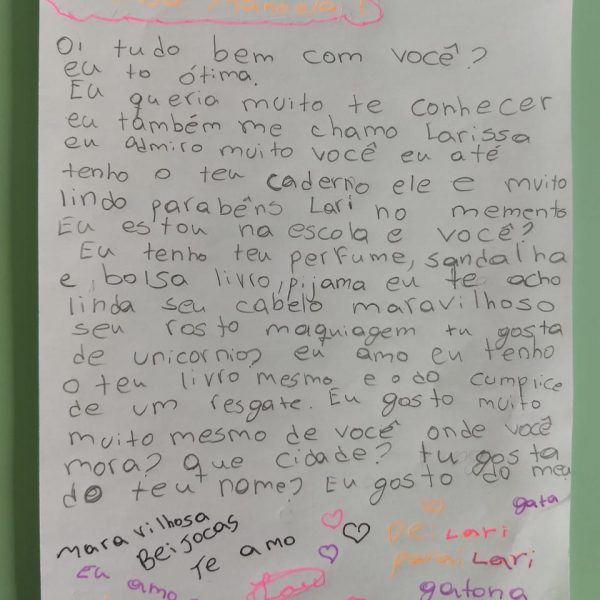 Oi tudo bem com você?
eu to ótima.
Eu queria muito te conhecer
eu também me chamo Larissa
eu admiro muito você eu até
tenho o teu caderno ele e muito
lindo parabêns Lari no memento
Eu estou na escola e você?
Eu tenho teu perfume, sandalha
e, bolsa livro, pijama eu te acho
linda seu cabelo maravilhoso
seu rosto maquiagem tu gosta
de unicornio? eu amo eu tenho
o teu livro mesmo e o do cumplice
de um resgate. Eu gosto muito
muito mesmo de você onde você
mora? que cidade? tu gosta
do teu nome? Eu gosto do meu
maravilhosa
Beijocas
Te amo
Eu amo
gata
De: Lari
para: Lari
gatona